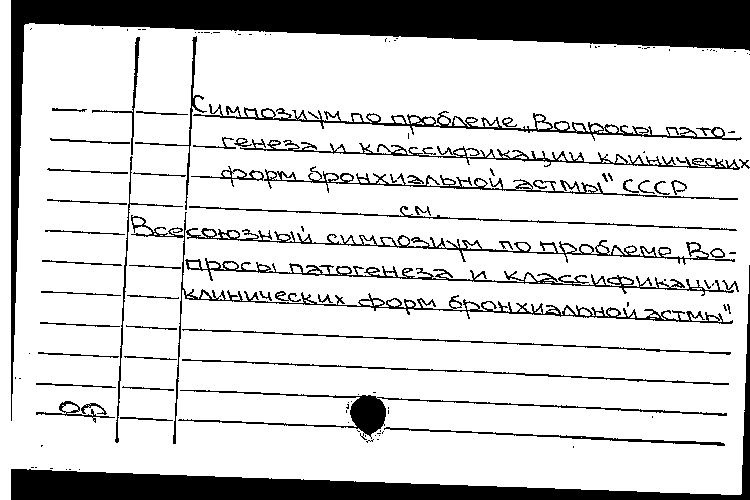 Симпозиум по проблеме „Вопросы пато-
генеза и классификации клинических
форм бронхиальной астмы" СССР
см.
Всесоюзный симпозиум по проблеме „Во-
просы патогенеза и классификации
клинических форм бронхиальной астмы"
ОФ